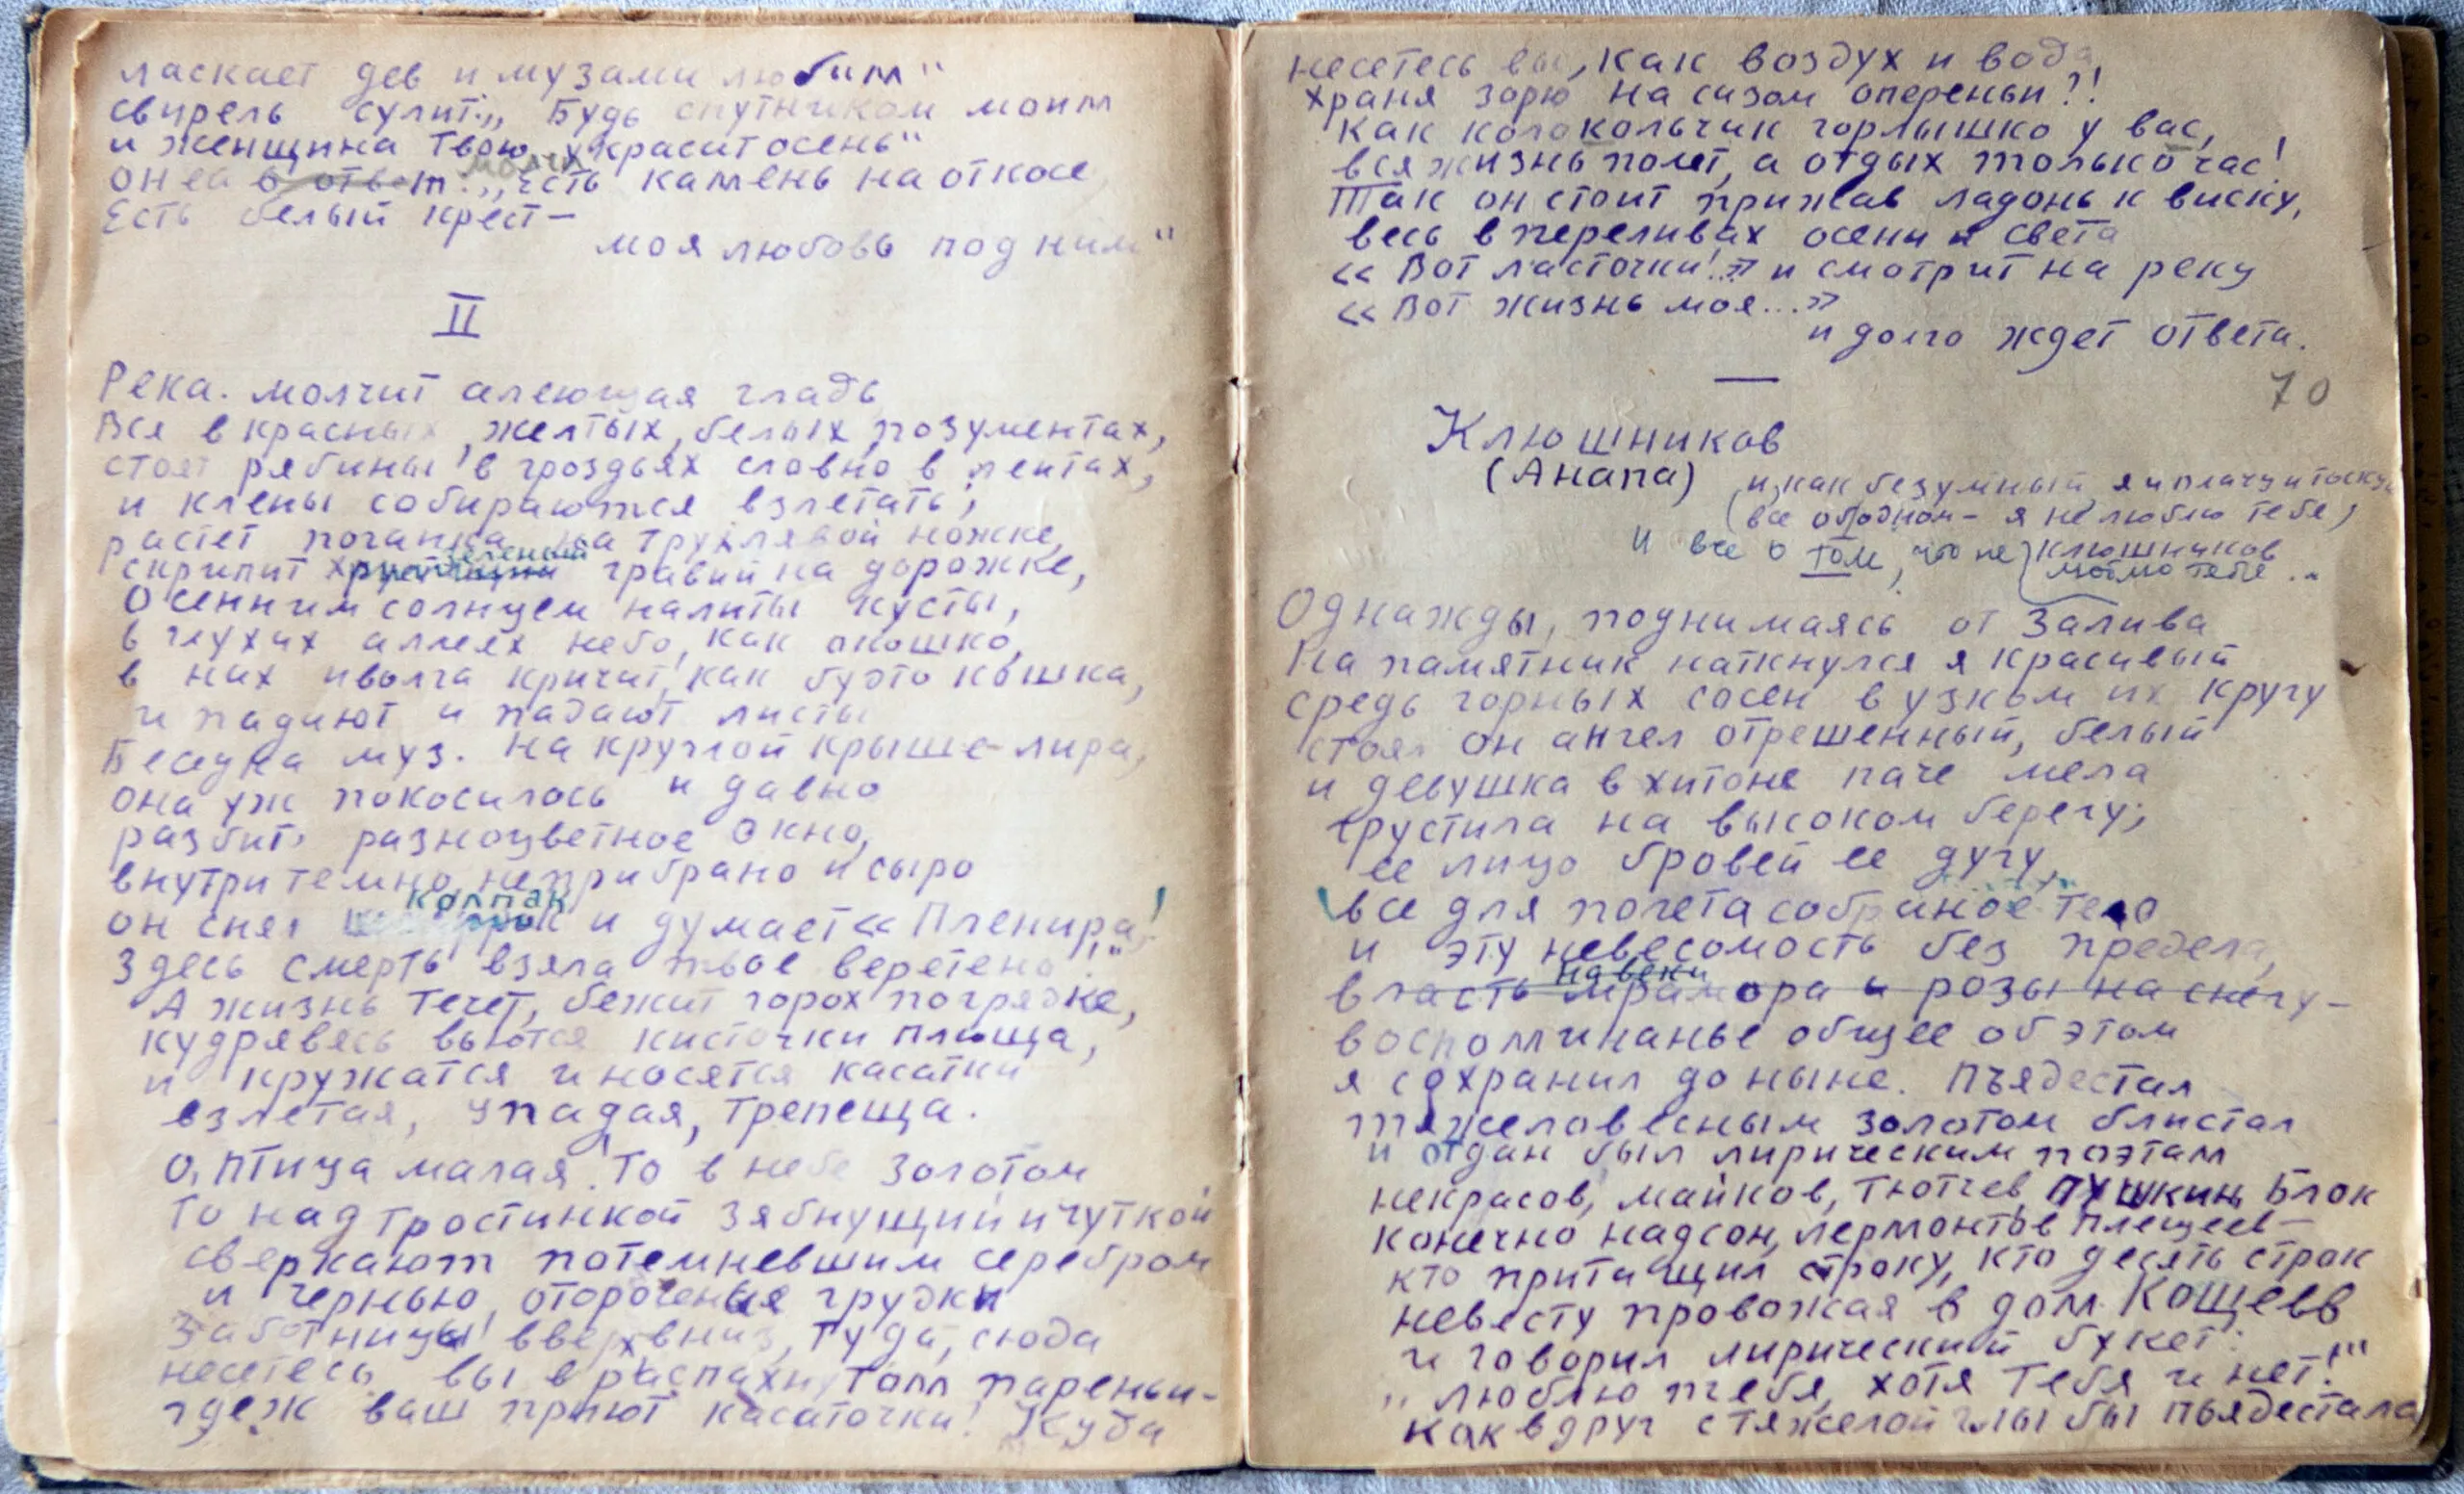 ласкает дев и музами любим"
свирель сулит: „Будь спутником моим
и женщина твою украсит осень"
он ей в ответ: „Есть камень на откосе
молча
Есть белый крест —
моя любовь под ним"
II
Река. молчит алеющая гладь
Вся в красных, желтых, белых позументах,
стоят рябины в гроздьях словно в лентах,
и клены собираются взлетать;
растет поганка на трухлявой ножке,
зеленый
скрипит хрустящий гравий на дорожке,
Осенним солнцем налиты кусты,
в глухих аллеях небо, как окошко,
в них иволга кричит, как будто кошка,
и падают и падают листы
Беседка муз. На круглой крыше - лира,
она уж покосилась и давно
разбито разноцветное окно,
внутри темно, неприбрано и сыро
колпак
он снял и думает « Пленира!
Здесь смерть взяла твое веретено!.."
А жизнь течет, бежит горох по грядке,
кудрявясь вьются кисточки плюща,
и кружатся и носятся касатки
взлетая, упадая, трепеща.
О, птица малая! То в небе золотом
То над тростинкой зябнущий и чуткой
сверкают потемневшим серебром
и чернью, отороченые грудки
Заботницы! вверх вниз, туда, сюда
несетесь вы в распахнутом пареньи -
где ж ваш приют касаточки! Куда
несетесь вы, как воздух и вода,
храня зорю на сизом опереньи?!
Как колокольчик горлышко у вас,
вся жизнь полет, а отдых только час!
Так он стоит прижав ладонь к виску,
весь в переливах осени и света
« Вот ласточки!..» и смотрит на реку
« Вот жизнь моя...»
и долго ждет ответа.
70
Клюшников
(Анапа)
и, как безумный, я и плачу и тоскую
все об одном - я не люблю тебе,
И все о том, что не
Клюшников
Однажды, поднимаясь от Залива
На памятник наткнулся я красивый
средь горных сосен в узком их кругу
стоял он ангел отрешенный, белый
и девушка в хитоне паче мела
грустила на высоком берегу;
ее лицо бровей ее дугу,
все для полета собраное тело
и эту невесомость без предела,
навеки
власть мрамора и розы на снегу -
воспоминанье общее об этом
я сохранил до ныне. Пъядестал
тяжеловесным золотом блистал
и отдан был лирическим поэтам
некрасов, майков, Тютчев, Пушкин, Блок
конечно надсон, лермонтов плещеев -
кто притащил строку, кто десять строк
невесту провожая в дом Кощеев
и говорил лирический букет:
„ люблю тебя, хотя тебя и нет!"
Как вдруг с тяжелой глыбы пьядестала